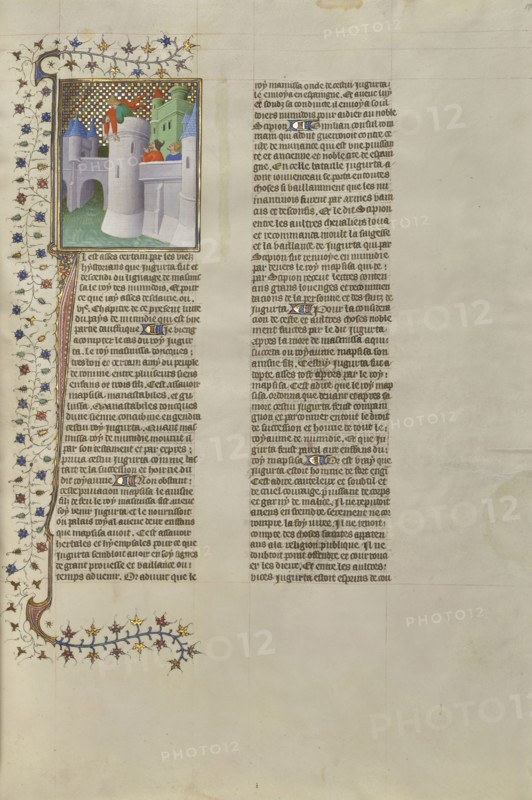 Il est asses certain par les viez
hystoriens que jugurta fut et
descendi ou lignaige de masinis
sa le roy des numides, Et pour
ce que jay asses desclaire ou
Chapitre de ce present livre
partie dauffrique Je vieng
acompter le cas du roy jugur
ta. Le roy masinissa jonques
tres loi et certain amy du peuple
de romme entre plusieurs siens
enfans ot trois filz, Cest assavoir
mapsisa. manastabiles. et gu
lussa. Manastabiles jonques
dune sienne concubine engendra
cestui roy jugurta. Quant mas
nissa roy de numidie mourut il
par son testament et par expres
priva cestui jugurta comme bas
tart de la succession et hoirie du
dit royaume Non obstant
ceste privacion mapsisa le ainsne
filz de feu le roy masinissa fist avecques
soy venir jugurta et le nourrissoit
ou palais royal avecques deux enffans
que mapsisa avoit. Cest assavoir
hertales et hyempsales pour ce que
jugurta sembloit avoir en soy signes
de grant prouesse et vaillance ou
temps advenir. Or advint que le
roy manissa onde de cestui jugurta
le envoya en espaigne. Et avec luy
et soubz sa conduite il envoya soul
doiers numidois pour aidier au noble
Scipion Emilian consul rom
main qui adonc guerroioit contre ce
ulx de numance qui est une puissan
te et ancienne et noble cite de espai
gne. En celle bataille jugurta a
dont jouvenceau se porta en toutes
choses si vaillamment que les nu
mantinois furent par armes vain
cus et desconfis. Et le dit Scipion
entre les aultres chevaliers loua
et recommanda moult la saigesse
et la vaillance de jugurta qui par
Scipion fut renvoye en numidie
par devers le roy mapsisa qui de
par Scipion receut lectres conten
ans grans louenges et recommen
dacions de la personne et des faiz de
jugurta Pour la considera
cion de ceste et aultres choses noble
ment faictes par le dit jugurta
apres la mort de masinissa aqui
succeda ou royaume mapsisa son
ainsne filz. Cestui jugurta fut a
mapsisa. Cest adire que le roy map
sisa ordonna que devant et apres sa
mort cestui jugurta feust compai
gnon et parconnier en tout le droit
de succession et hoirie de tout le
royaume de numidie. Et que ju
gurta feust pareil aux enffans du
roy mapsisa Or est vray que
jugurta estoit homme de fort engin
Cest adire cauteleux et soubtil et
de cruel couraige. puissant de corps
et garny de malice. Il ne reputoit
aucuns enfreindre serement ne cor
rompre la foy juree. Il ne tenoit
compte des choses sacrees apparten
ans a la religion publique. Il ne
doubtoit point offendre et courrouc
er les dieux. Et entre les aultres
vices jugurta estoit esprins de cou
PHOTO12